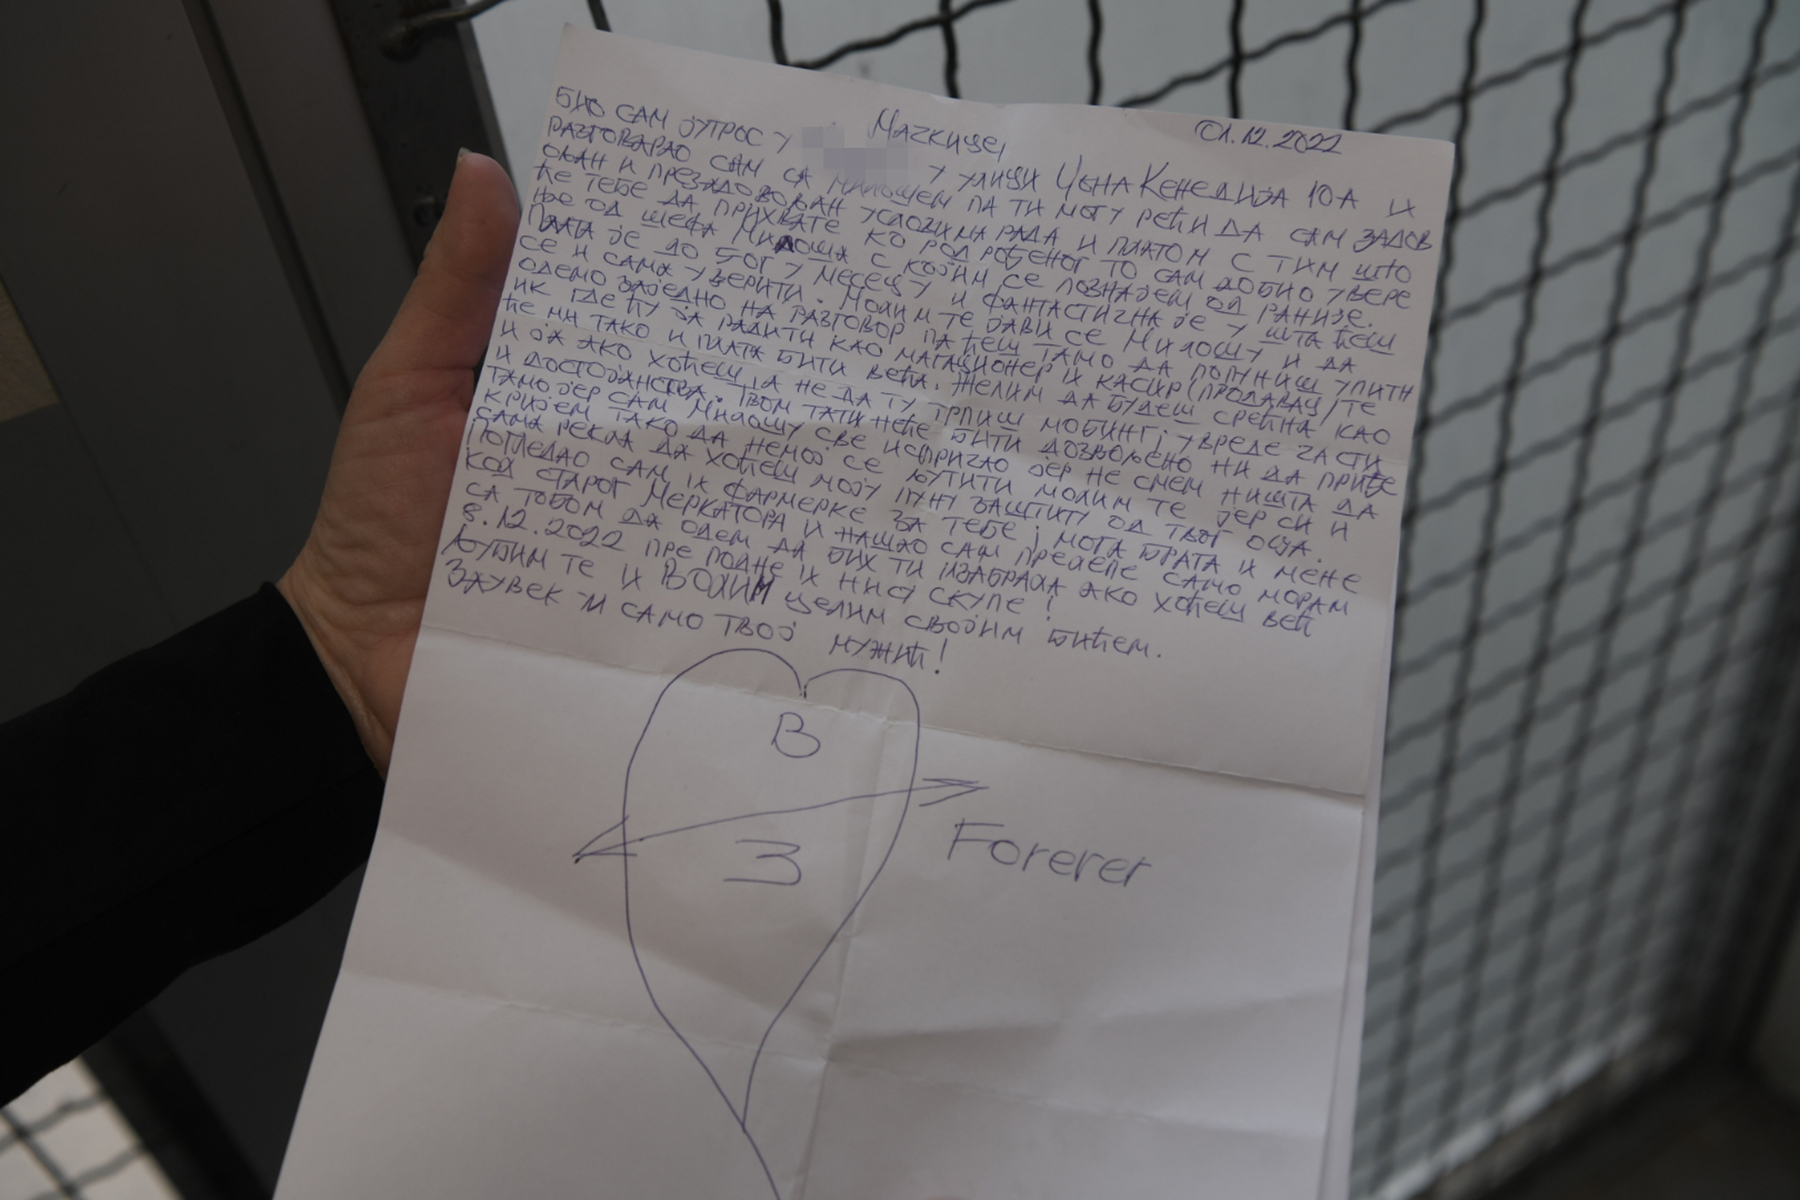 Мачкице, 01.12.2022
БИО САМ ЈУТРОС У У УЛИЦИ ЏОНА КЕНЕДИЈА 10А И
РАЗГОВАРАО САМ СА МИЛОШЕМ ПА ТИ МОГУ РЕЋИ ДА САМ ЗАДОВ
ОЉАН И ПРЕЗАДОВОЉАН УСЛОВИМА РАДА И ПЛАТОМ С ТИМ ШТО
ЋЕ ТЕБЕ ДА ПРИХВАТЕ КО РОД РОЂЕНОГ ТО САМ ДОБИО УВЕРЕ
ЊЕ ОД ШЕФА МИЛОША С КОЈИМ СЕ ПОЗНАЈЕМ ОД РАНИЈЕ.
ПЛАТА ЈЕ ДО 5ОГ У МЕСЕЦУ И ФАНТАСТИЧНА ЈЕ У ШТА ЋЕШ
СЕ И САМА УВЕРИТИ. МОЛИМ ТЕ ЈАВИ СЕ МИЛОШУ И ДА
ОДЕМО ЗАЈЕДНО НА РАЗГОВОР ПА ЋЕШ ТАМО ДА ПОПУНИШ УПИТН
ИК ГДЕ ЋУ ЈА РАДИТИ КАО МАГАЦИОНЕР И КАСИР (ПРОДАВАЦ) ТЕ
ЋЕ МИ ТАКО И ПЛАТА БИТИ ВЕЋА. ЖЕЛИМ ДА БУДЕШ СРЕЋНА КАО
И ЈА АКО ХОЋЕШ, А НЕ ДА ТУ ТРПИШ МОБИНГ, УВРЕДЕ ЧАСТИ
И ДОСТОЈАНСТВА. ТВОМ ТАТИ НЕЋЕ БИТИ ДОЗВОЉЕНО НИ ДА ПРИЂЕ
ТАМО ЈЕР САМ МИЛОШУ СВЕ ИСПРИЧАО ЈЕР НЕ СМЕМ НИШТА ДА
КРИЈЕМ ТАКО ДА НЕМОЈ СЕ ЉУТИТИ МОЛИМ ТЕ ЈЕР СИ И
САМА РЕКЛА ДА ХОЋЕШ МОЈУ ПУНУ ЗАШТИТУ ОД ТВОГ ОЦА.
ПОГЛЕДАО САМ И ФАРМЕРКЕ ЗА ТЕБЕ, МОГА БРАТА И МЕНЕ
КОД СТАРОГ МЕРКАТОРА И НАШАО САМ ПРЕЛЕПЕ САМО МОРАМ
СА ТОБОМ ДА ОДЕМ ДА БИХ ТИ ИЗАБРАЛА АКО ХОЋЕШ ВЕЋ
8.12.2022 ПРЕ ПОДНЕ И НИСУ СКУПЕ!
ЉУБИМ ТЕ И ВОЛИМ ЦЕЛИМ СВОЈИМ БИЋЕМ.
ЗАУВЕК И САМО ТВОЈ МУЖИЋ!
В
З
Forever